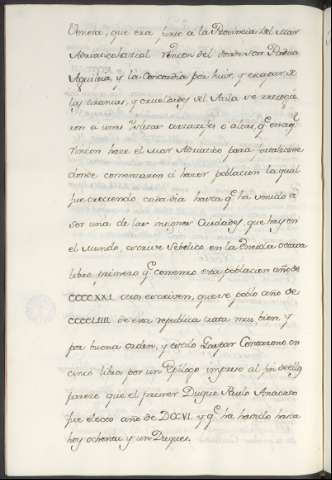 Veneta, que era junto a la Provincia del mar
Adriatico la qual rincon del donde son Padua
Aquileia y la Concordia por huir, y escapar de
las tiranias, y crueldades del Atila se recogie
ron a unas Yslas cercadas o altas, q.e en aq.l
rincon hace el mar Adriatico para fortalecerse
donde comenzaron a hacer poblacion la qual
fue creciendo cada dia hasta q.e ha venido a
ser una de las mejores Ciudades que hay en
el mundo, escrive Sebelico en la Eneida octava
libro primero q.e comenzo esta poblacion año de
CCCCXXI otros escriven, que se poblo año de
CCCCLIIII de esta republica trata muy bien y
por buena orden, y estilo Gaspar Contareno en
cinco libros por un Epilogo impreso al fin de ellos
parece que el primer Duque Paulo Anacasto
fue electo año de DCCVI. y q.e ha havido hasta
hoy ochenta y un Duques.